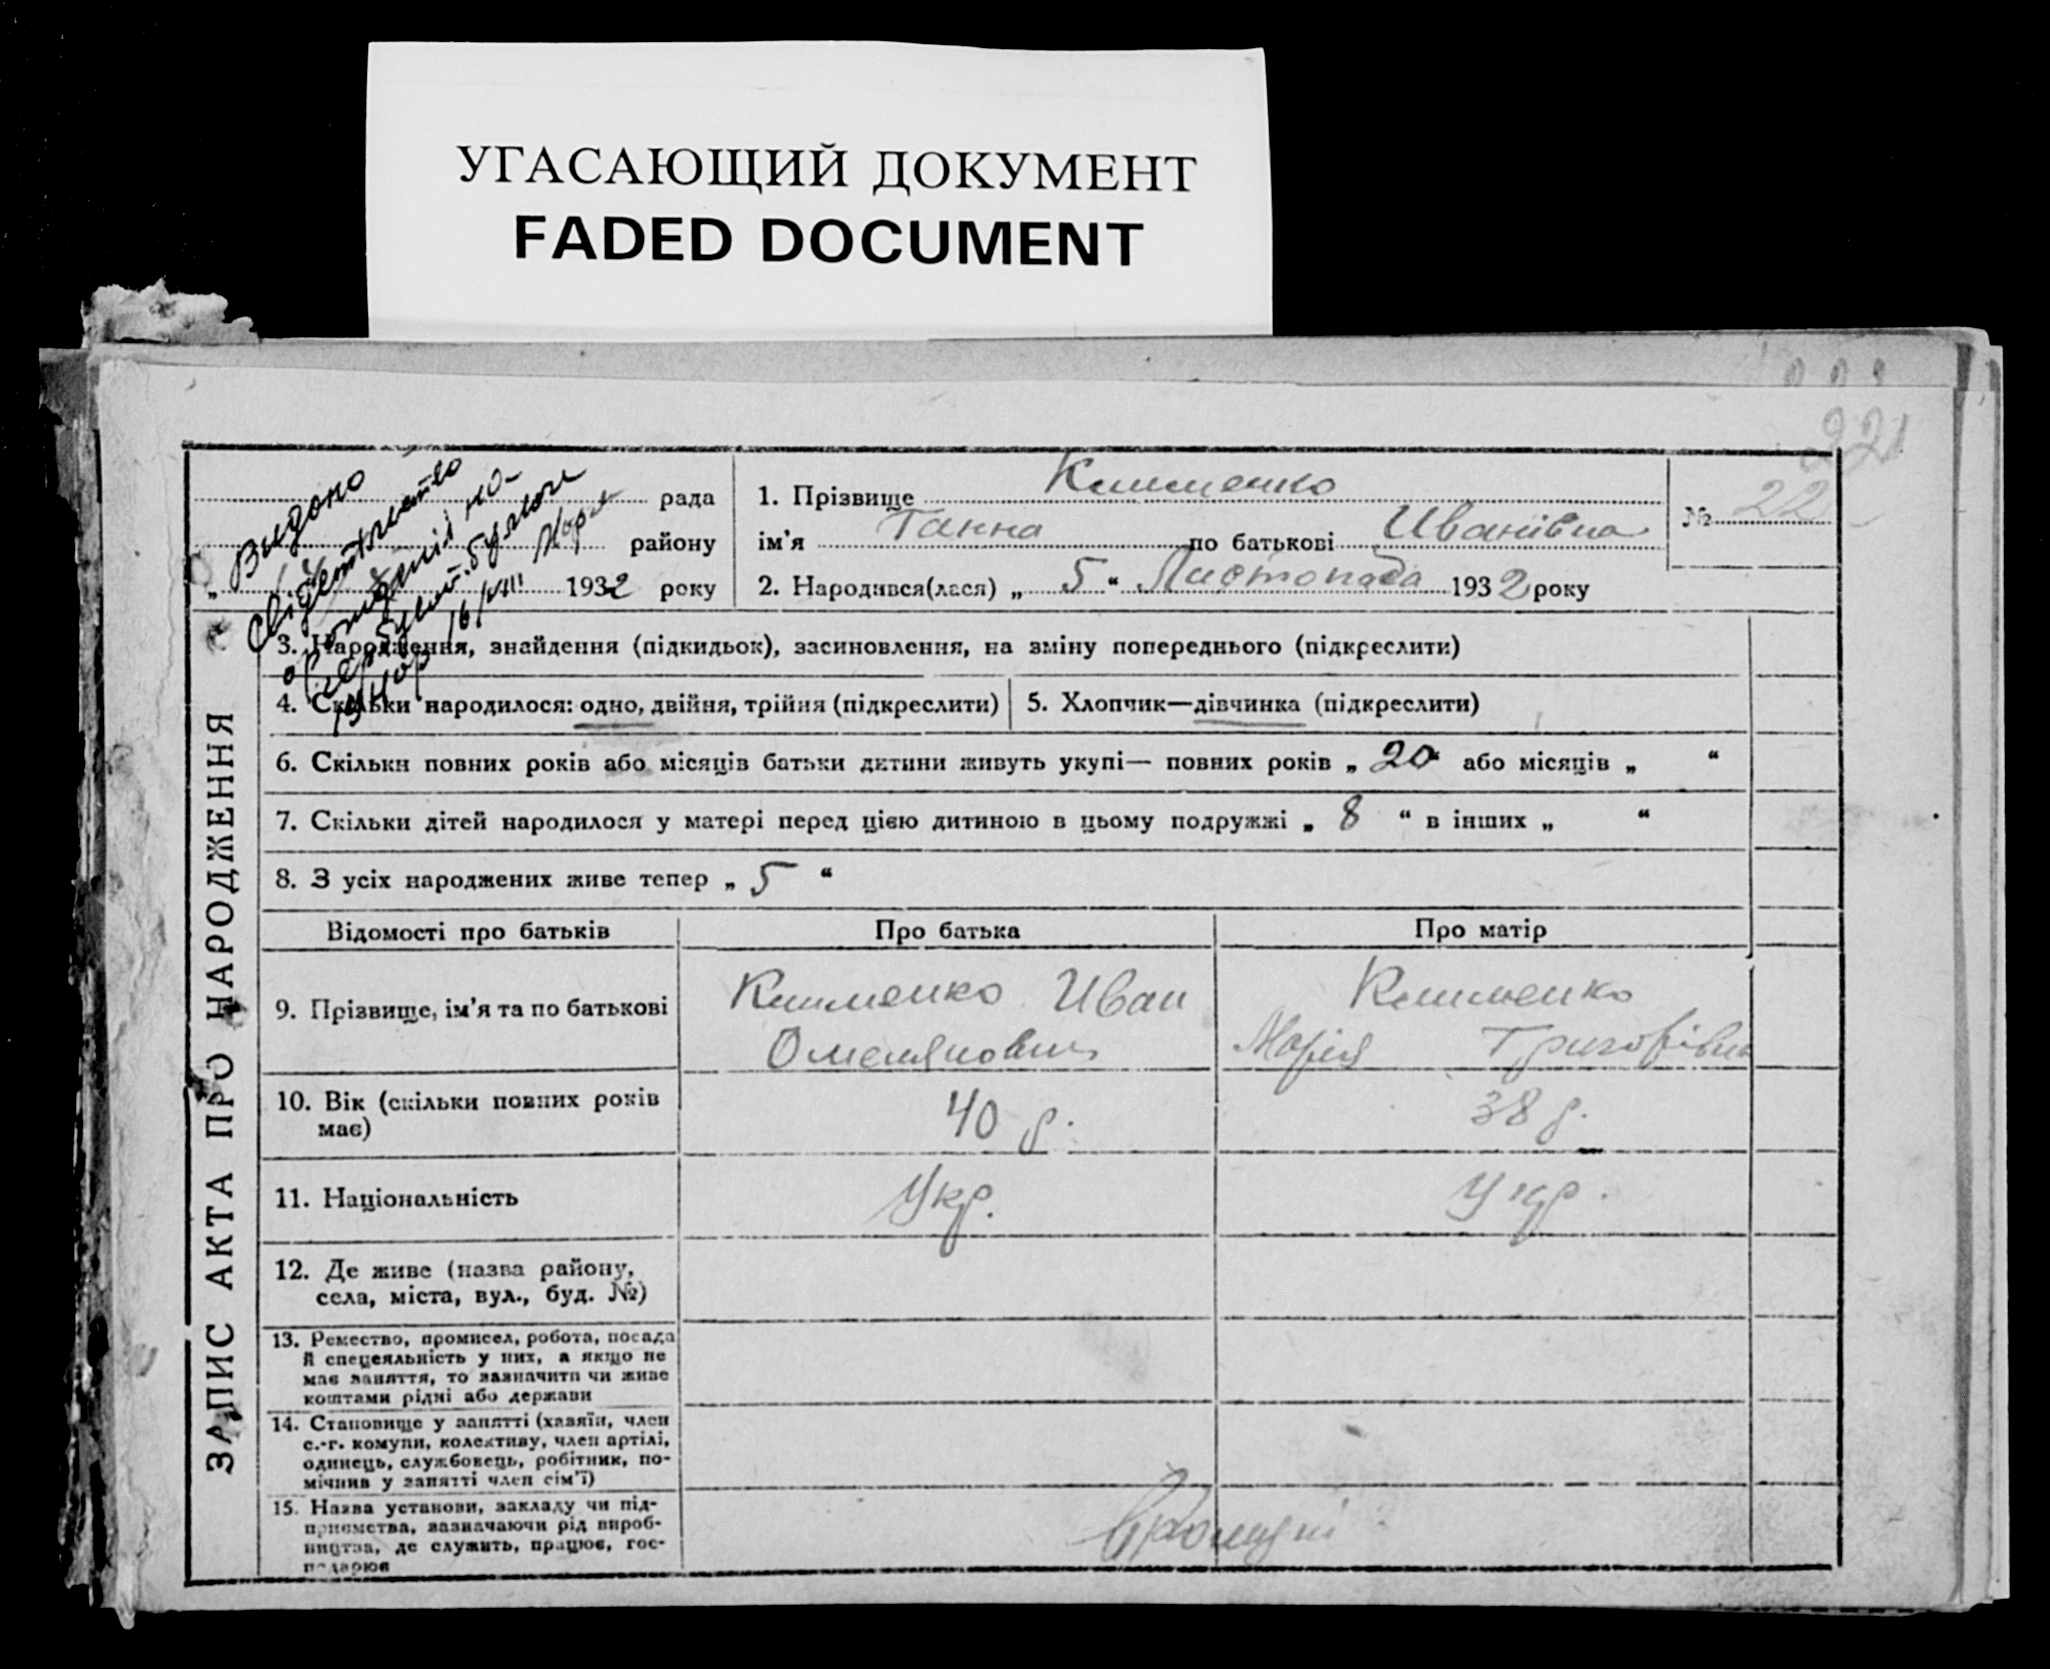 УГАСАЮЩИЙ ДОКУМЕНТ
FADED DOCUMENT
221
рада
району
„ 1932 року
Видано
свідоцтво
16/VIII
1. Прізвище Клименко
№ 22
ім'я Ганна по батькові Иванівна
2. Народився(лася) „ 5 “ Листопада 1932 року
ЗАПИС АКТА ПРО НАРОДЖЕННЯ
3. Народження, знайдення (підкидьок), засиновлення, на зміну попереднього (підкреслити)
4. Скільки народилося: одно, двійня, трійня (підкреслити)
5. Хлопчик—дівчинка (підкреслити)
6. Скільки повних років або місяців батьки дитини живуть укупі— повних років „ 20 “ або місяців „ “
7. Скільки дітей народилося у матері перед цією дитиною в цьому подружжі „ 8 “ в інших „ “
8. З усіх народжених живе тепер „ 5 “
Відомості про батьків
Про батька
Про матір
9. Прізвище, ім'я та по батькові
Клименко Иван
Омелянович
Клименко
Марія Григорівна
10. Вік (скільки повних років
має)
40 р.
38 р.
11. Національність
Укр.
Укр.
12. Де живе (назва району,
села, міста, вул., буд. №)
13. Ремество, промисел, робота, посада
й спеціяльність у них, а якщо не
має заняття, то зазначити чи живе
коштами рідні або держави
14. Становище у занятті (хазяїн, член
с.-г. комуни, колективу, член артілі,
одинець, службовець, робітник, по-
мічник у занятті член сім'ї)
15. Назва установи, закладу чи під-
приємства, зазначаючи рід вироб-
ництва, де служить, працює, гос-
подарює